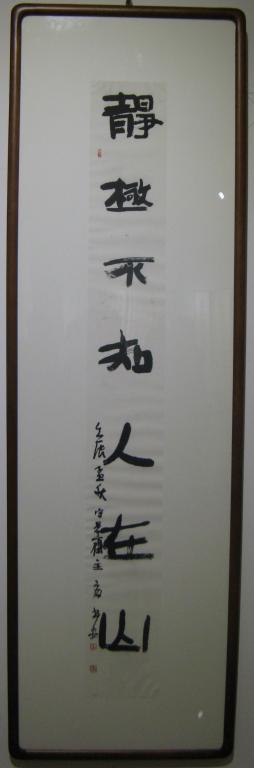 靜極不知人在山
壬辰孟秋